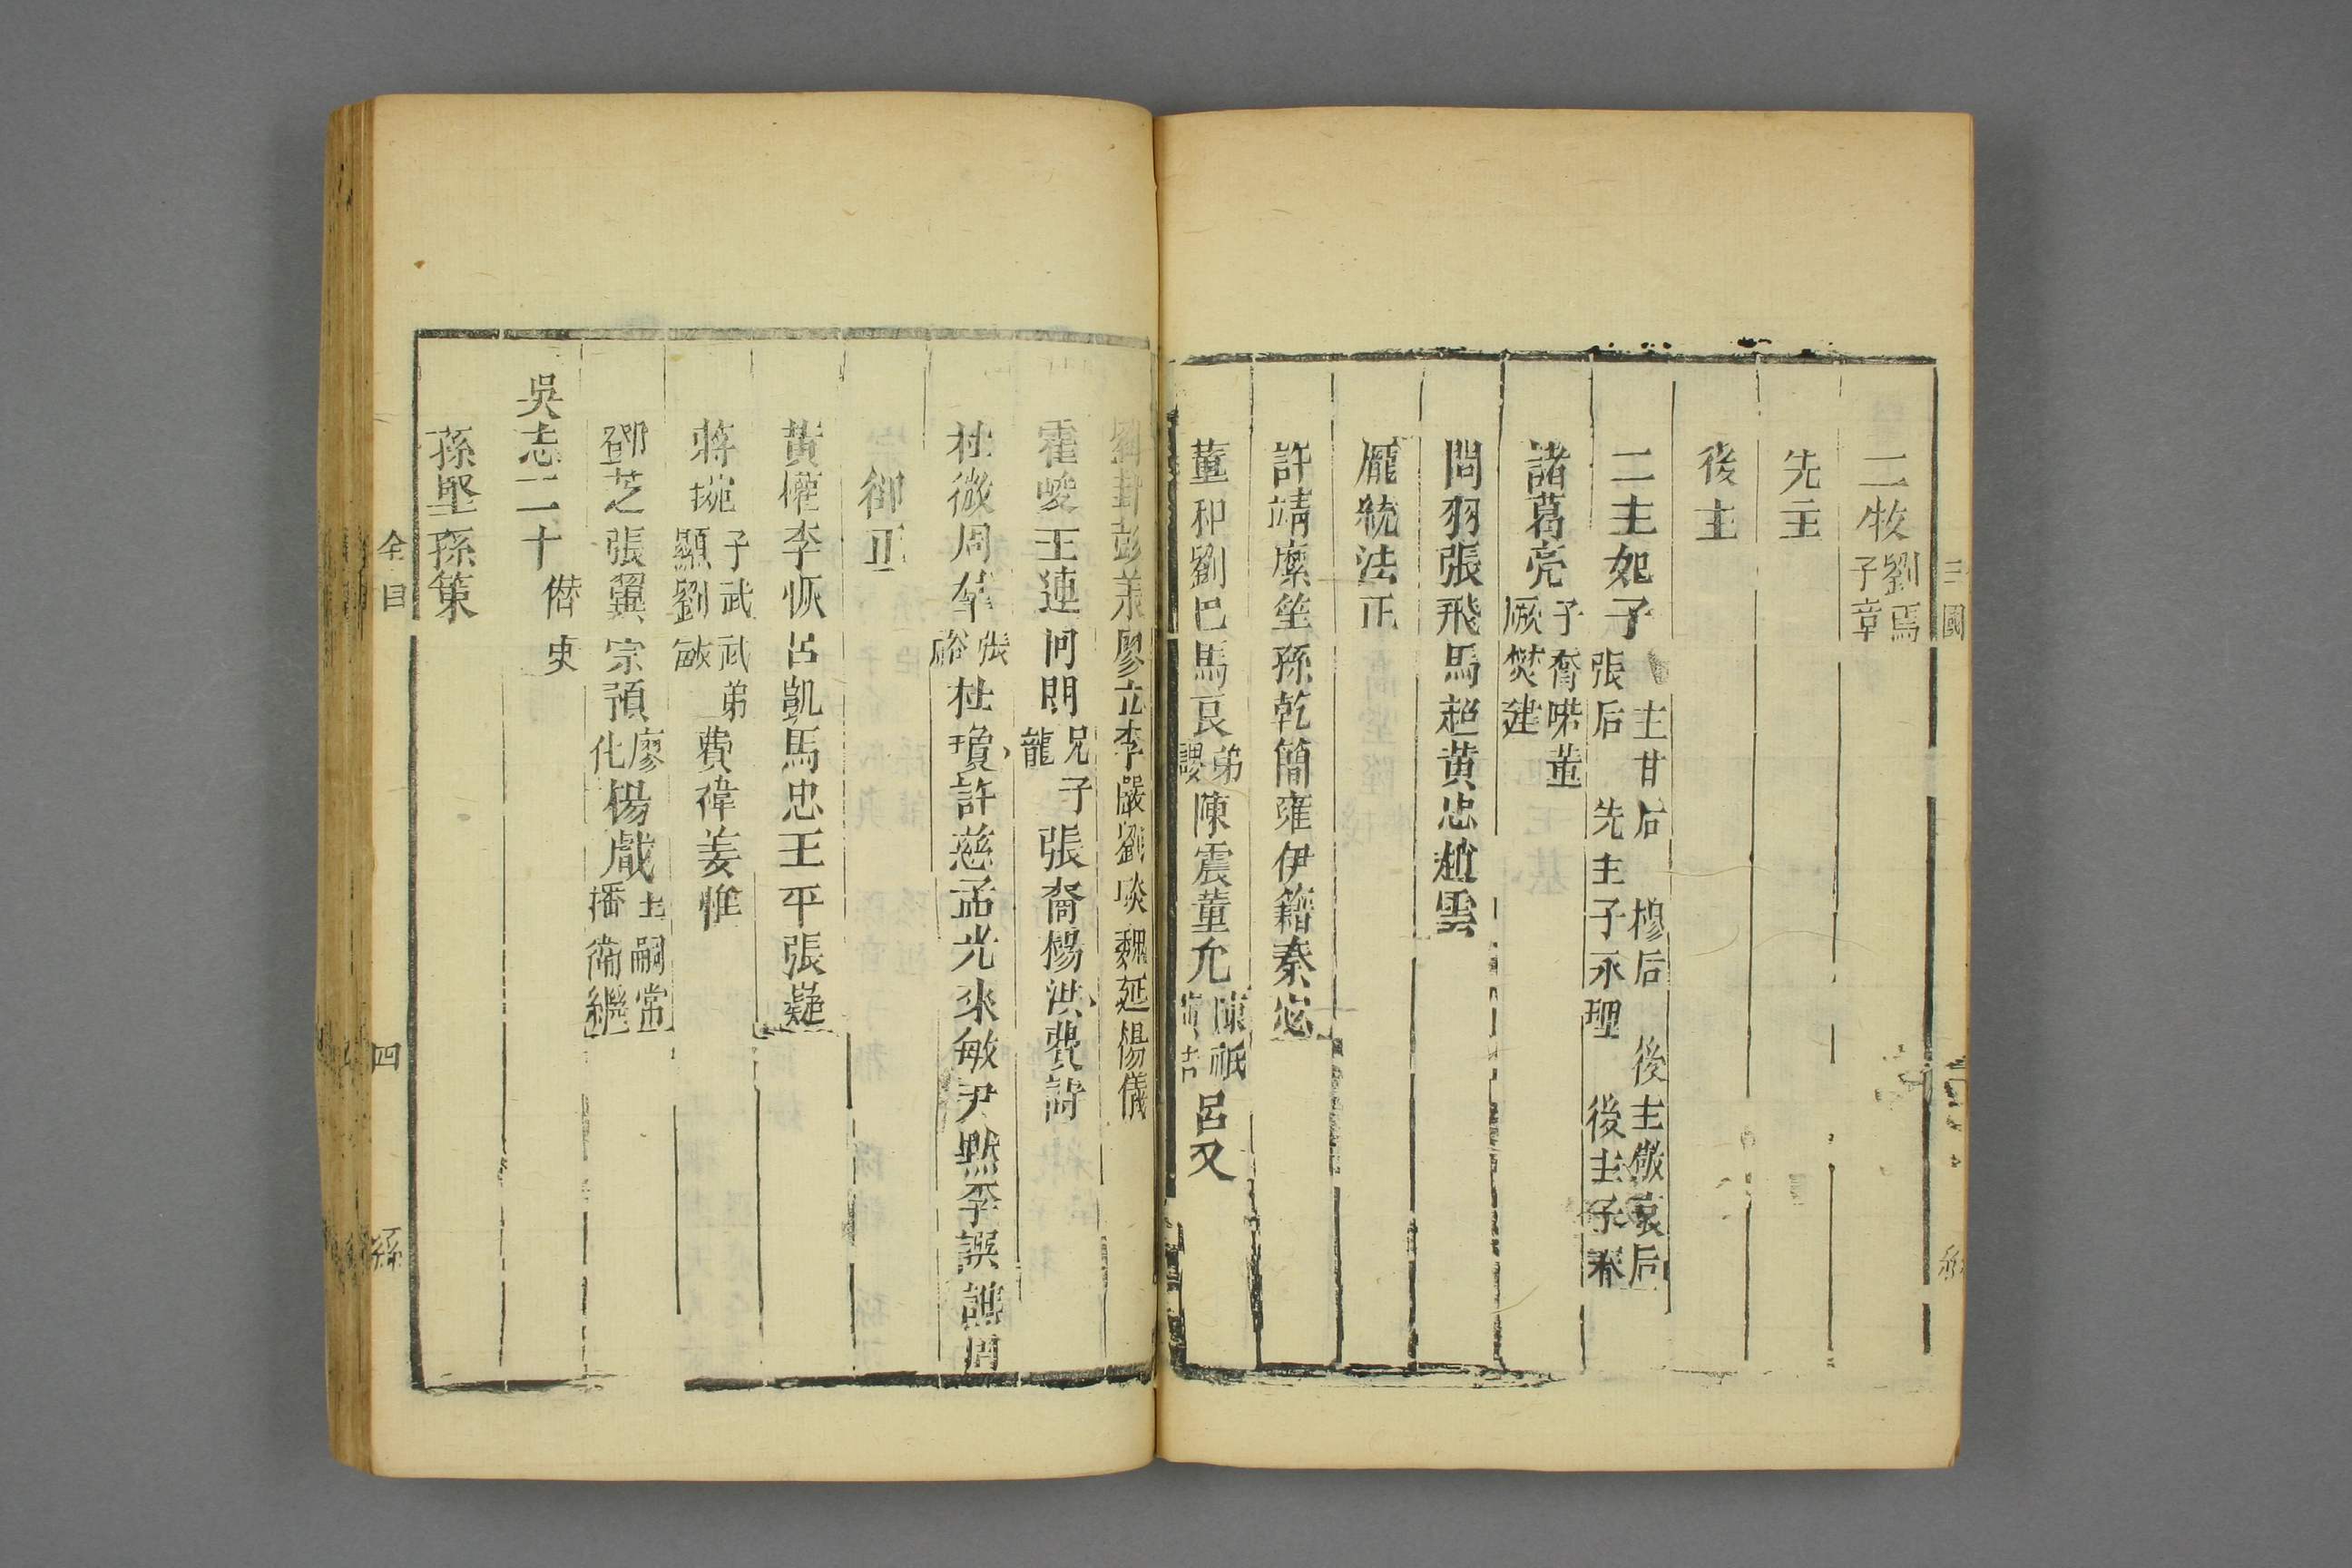 三國
二牧劉焉子章
先主
後主
二主妃子主甘后 穆后 後主敬哀后張后 先主子永理 後主子
諸葛亮子喬 董厥樊建
関羽張飛馬超黄忠趙雲
龐統法正
許靖麋笁孫乾簡雍伊籍秦宓
董和劉巴馬良弟謖陳震董允陳祗呂乂
劉封彭羕廖立李嚴劉琰魏延楊儀
霍峻王連向朗兄子龍張裔楊洪費詩
杜微周羣張裕杜瓊許慈孟光來敏尹黙李譔譙周
郤正
黄權李恢吕凱馬忠王平張嶷
蔣琬子武武弟顯劉敏費禕姜惟
鄧芝張翼宗預廖化楊戲王嗣常播衛繼
吳志二十僣史
孫堅孫策
全目
四
孫